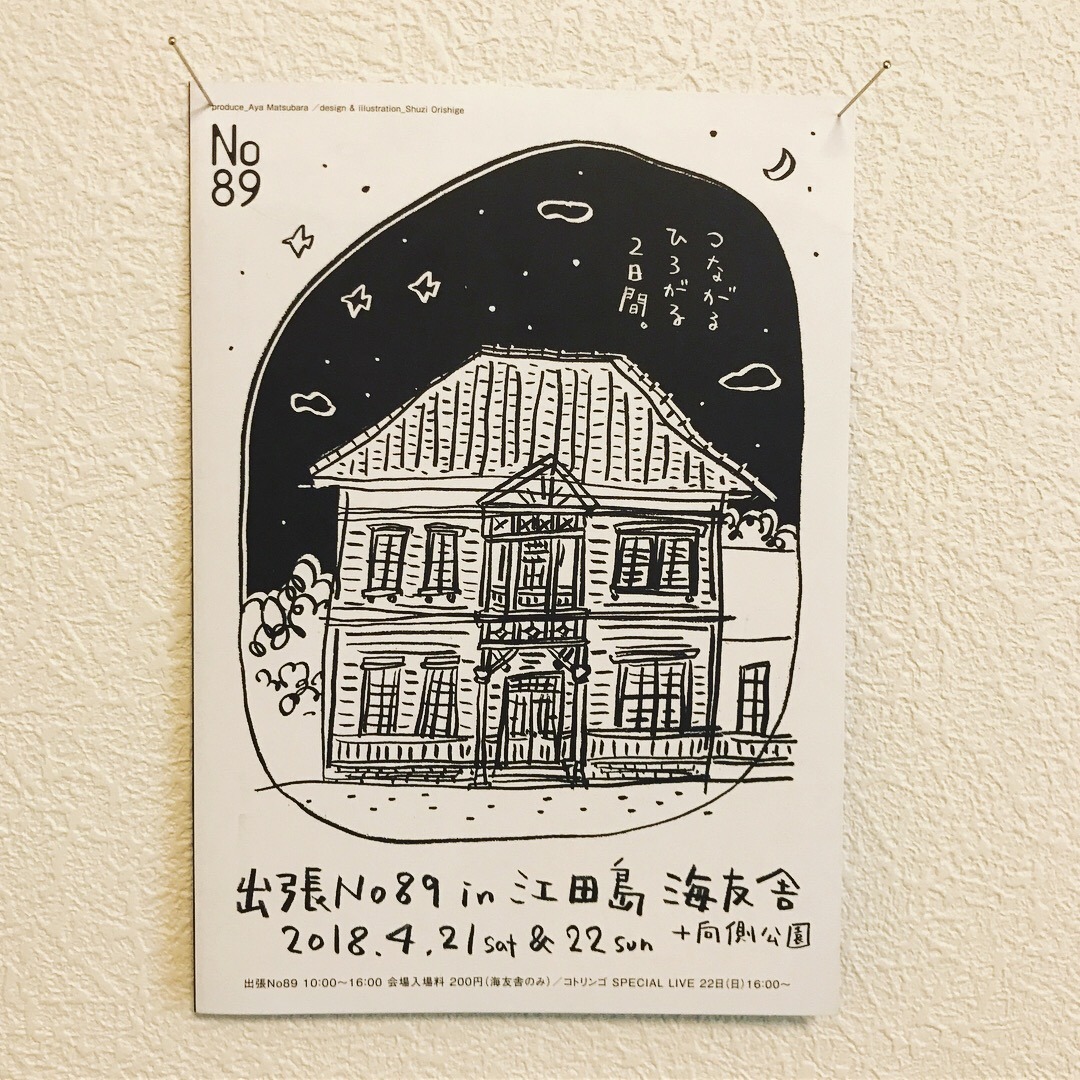 produce_Aya Matsubara／design & illustration_Shuzi Orishige
No
89
つながる
ひろがる
2日間。
出張No89 in 江田島 海友舎
2018.4.21 sat & 22 sun +向側公園
出張No89 10:00〜16:00 会場入場料 200円(海友舎のみ)／コトリンゴ SPECIAL LIVE 22日(日)16:00〜